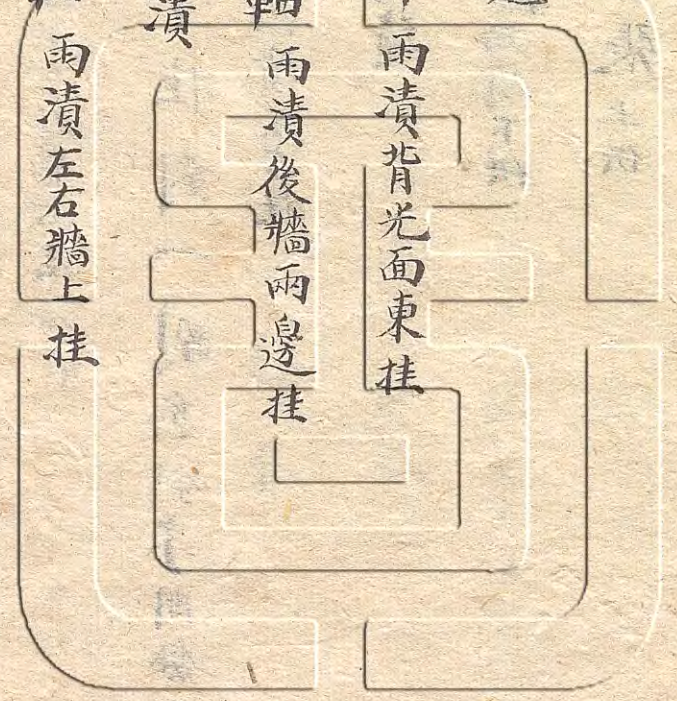 雨漬背光面東挂
軸　雨漬後牆兩邊挂
漬
雨漬左右牆上挂